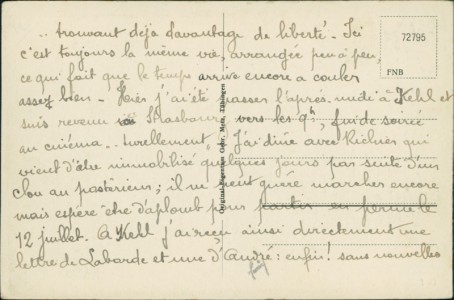 .. trouvant déjà davantage de liberté - Ici
c'est toujours la même vie, arrangée peu à peu,
ce qui fait que le temps arrive encore à couler
assez bien - Hier j'ai été passer l'après-midi à Kehl et
suis revenu à Strasbourg vers les 9h, fin de soirée
au cinéma. - turellement j'ai dîné avec Richier qui
vient d'être immobilisé quelques jours par suite d'un
clou au postérieur; il ne peut guère marcher encore
mais espère être d'aplomb pour partir en perme le
12 juillet. A Kehl j'ai reçu ainsi directement une
lettre de Laborde et une d'André: enfin! sans nouvelles
72795
FNB
Original-Eigentum Gebr. Metz, Tübingen